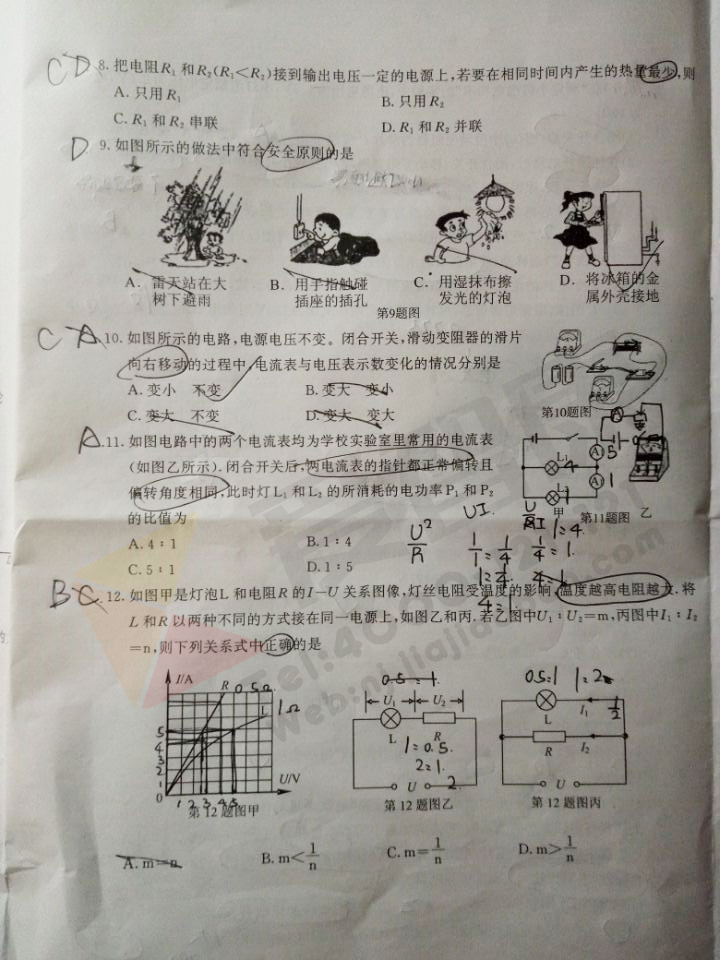 CD 8. 把电阻R₁ 和R₂(R₁<R₂)接到输出电压一定的电源上,若要在相同时间内产生的热量最少,则
A. 只用R₁ B. 只用R₂
C. R₁ 和R₂ 串联 D. R₁ 和R₂ 并联
D 9. 如图所示的做法中符合安全原则的是
A. 雷天站在大树下避雨 B. 用手指触碰插座的插孔 C. 用湿抹布擦发光的灯泡 D. 将冰箱的金属外壳接地
第9题图
C A 10. 如图所示的电路,电源电压不变。闭合开关,滑动变阻器的滑片
向右移动的过程中,电流表与电压表示数变化的情况分别是
A. 变小 不变 B. 变大 变小
C. 变大 不变 D. 变大 变大
第10题图
A 11. 如图电路中的两个电流表均为学校实验室里常用的电流表
(如图乙所示).闭合开关后,两电流表的指针都正常偏转且
偏转角度相同,此时灯L₁ 和L₂ 的所消耗的电功率P₁ 和P₂
的比值为
A. 4∶1 B. 1∶4
C. 5∶1 D. 1∶5
A 5
L₁ 4
A 1
L₂
甲 第11题图 乙
UI
U²/R
1=4.
4=1.
B C 12. 如图甲是灯泡L 和电阻R 的I-U 关系图像,灯丝电阻受温度的影响,温度越高电阻越大.将
L 和R 以两种不同的方式接在同一电源上,如图乙和丙.若乙图中U₁∶U₂=m,丙图中I₁∶I₂
=n,则下列关系式中正确的是
I/A
R 0.5Ω
L 1Ω
5
4
3
2
1
0 1 2 3 4 5
U/V
第12题图甲
0.5=1.
U₁ U₂
L R
1=0.5.
2=1.
U 2
第12题图乙
0.5=1 1=2
L I₁ 1/2
R I₂
U
第12题图丙
A. m=n B. m<1/n C. m=1/n D. m>1/n